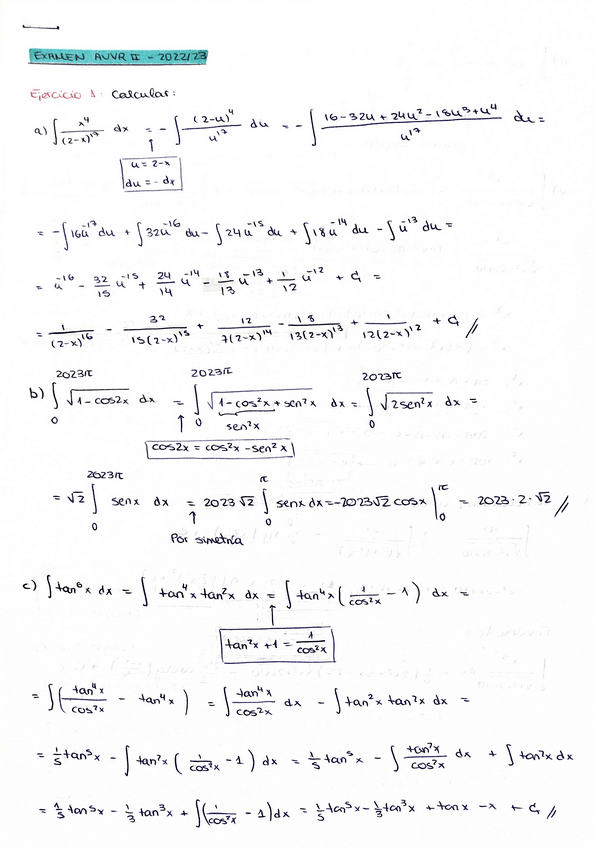 EXAMEN AVVR II - 2022/23
Ejercicio 1: Calcular:
a) ∫ x⁴/(2-x)¹⁷ dx = -∫ (2-u)⁴/u¹⁷ du = -∫ (16-32u+24u²-18u³+u⁴)/u¹⁷ du =
↑
u = 2-x
du = -dx
= -∫16u⁻¹⁷ du + ∫32u⁻¹⁶ du - ∫24u⁻¹⁵ du + ∫18u⁻¹⁴ du - ∫u⁻¹³ du =
= u⁻¹⁶ - 32/15 u⁻¹⁵ + 24/14 u⁻¹⁴ - 18/13 u⁻¹³ + 1/12 u⁻¹² + C =
= 1/(2-x)¹⁶ - 32/15(2-x)¹⁵ + 12/7(2-x)¹⁴ - 18/13(2-x)¹³ + 1/12(2-x)¹² + C //
b) ∫₀^2023π √(1-cos2x) dx = ∫₀^2023π √(1-cos²x+sen²x) dx = ∫₀^2023π √(2sen²x) dx =
↑ sen²x
cos2x = cos²x - sen²x
= √2 ∫₀^2023π senx dx = 2023√2 ∫₀^π senx dx = -2023√2 cosx |₀^π = 2023·2·√2 //
↑
Por simetría
c) ∫tan⁶x dx = ∫ tan⁴x tan²x dx = ∫ tan⁴x (1/cos²x - 1) dx =
↑
tan²x + 1 = 1/cos²x
= ∫(tan⁴x/cos²x - tan⁴x) = ∫ tan⁴x/cos²x dx - ∫ tan²x tan²x dx =
= 1/5 tan⁵x - ∫ tan²x (1/cos²x - 1) dx = 1/5 tan⁵x - ∫ tan²x/cos²x dx + ∫ tan²x dx
= 1/5 tan⁵x - 1/3 tan³x + ∫(1/cos²x - 1)dx = 1/5 tan⁵x - 1/3 tan³x + tanx - x + C //